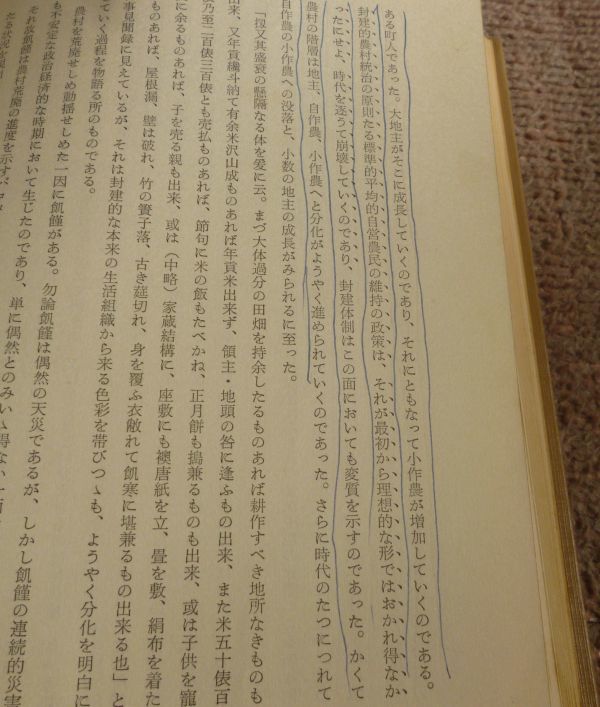 ある町人であった。大地主がそこに成長していくのであり、それにともなって小作農が増加していくのである。
封建的農村統治の原則たる標準的平均的自営農民の維持の政策は、それが最初から理想的な形ではおかれ得なか
ったにせよ、時代を逐うて崩壊していくのであり、封建体制はこの面においても変質を示すのであった。かくて
農村の階層は地主、自作農、小作農へと分化がようやく進められていくのであった。さらに時代のたつにつれて
自作農の小作農への没落と、小数の地主の成長がみられるに至った。
「扨又其盛衰の懸隔なる体を爰に云。まづ大体過分の田畑を持余したるものあれば耕作すべき地所なきものも
出来、又年貢穢斗納て有余米沢山成ものあれば年貢米出来ず、領主・地頭の咎に逢ふもの出来、また米五十俵百
乃至二百俵三百俵とも売払ものあれば、節句に米の飯もたべかね、正月餅も搗兼るものも出来、或は子供を寵
に余るものあれば、子を売る親も出来、或は(中略)家蔵結構に、座敷にも襖唐紙を立、畳を敷、絹布を着た
ものあれば、屋根漏、壁は破れ、竹の簀子落、古き莚切れ、身を覆ふ衣敝れて飢寒に堪兼るもの出来る也」と
事見聞録に見えているが、それは封建的な本来の生活組織から来る色彩を帯びつゝも、ようやく分化を明白に
ていく過程を物語る所のものである。
農村を荒廃せしめ動揺せしめた一因に飢饉がある。勿論飢饉は偶然の天災であるが、しかし飢饉の連続的災害
も不安定な政治経済的な時期において生じたのであり、単に偶然とのみいゝ得ない
それ故飢饉は農村荒廃の進度を示すバロ
たる状況を